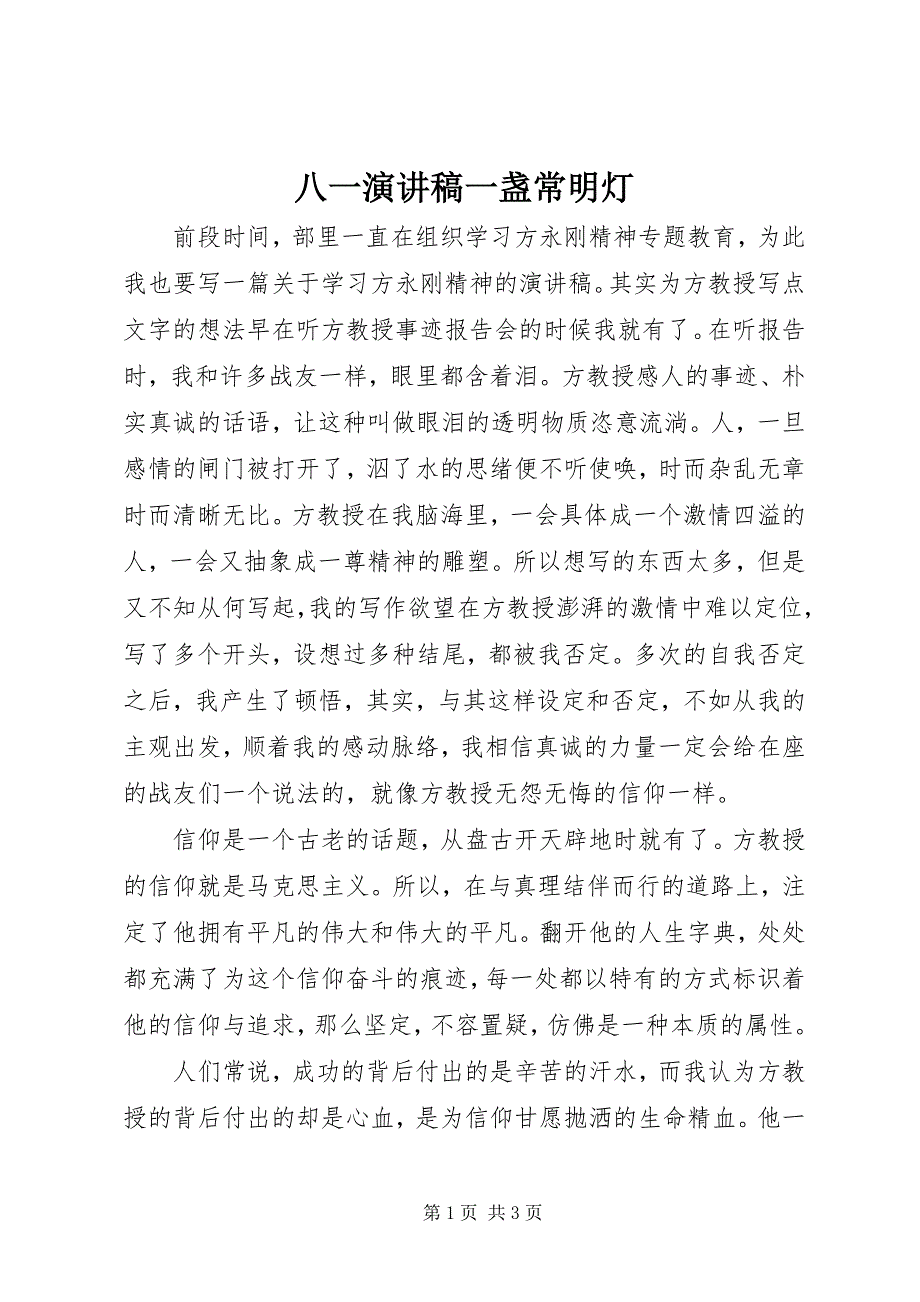 八一演讲稿一盏常明灯
前段时间，部里一直在组织学习方永刚精神专题教育，为此
我也要写一篇关于学习方永刚精神的演讲稿。其实为方教授写点
文字的想法早在听方教授事迹报告会的时候我就有了。在听报告
时，我和许多战友一样，眼里都含着泪。方教授感人的事迹、朴
实真诚的话语，让这种叫做眼泪的透明物质恣意流淌。人，一旦
感情的闸门被打开了，泅了水的思绪便不听使唤，时而杂乱无章
时而清晰无比。方教授在我脑海里，一会具体成一个激情四溢的
人，一会又抽象成一尊精神的雕塑。所以想写的东西太多，但是
又不知从何写起，我的写作欲望在方教授澎湃的激情中难以定位，
写了多个开头，设想过多种结尾，都被我否定。多次的自我否定
之后，我产生了顿悟，其实，与其这样设定和否定，不如从我的
主观出发，顺着我的感动脉络，我相信真诚的力量一定会给在座
的战友们一个说法的，就像方教授无怨无悔的信仰一样。
信仰是一个古老的话题，从盘古开天辟地时就有了。方教授
的信仰就是马克思主义。所以，在与真理结伴而行的道路上，注
定了他拥有平凡的伟大和伟大的平凡。翻开他的人生字典，处处
都充满了为这个信仰奋斗的痕迹，每一处都以特有的方式标识着
他的信仰与追求，那么坚定，不容置疑，仿佛是一种本质的属性。
人们常说，成功的背后付出的是辛苦的汗水，而我认为方教
授的背后付出的却是心血，是为信仰甘愿抛洒的生命精血。他一
第 1 页 共 3 页